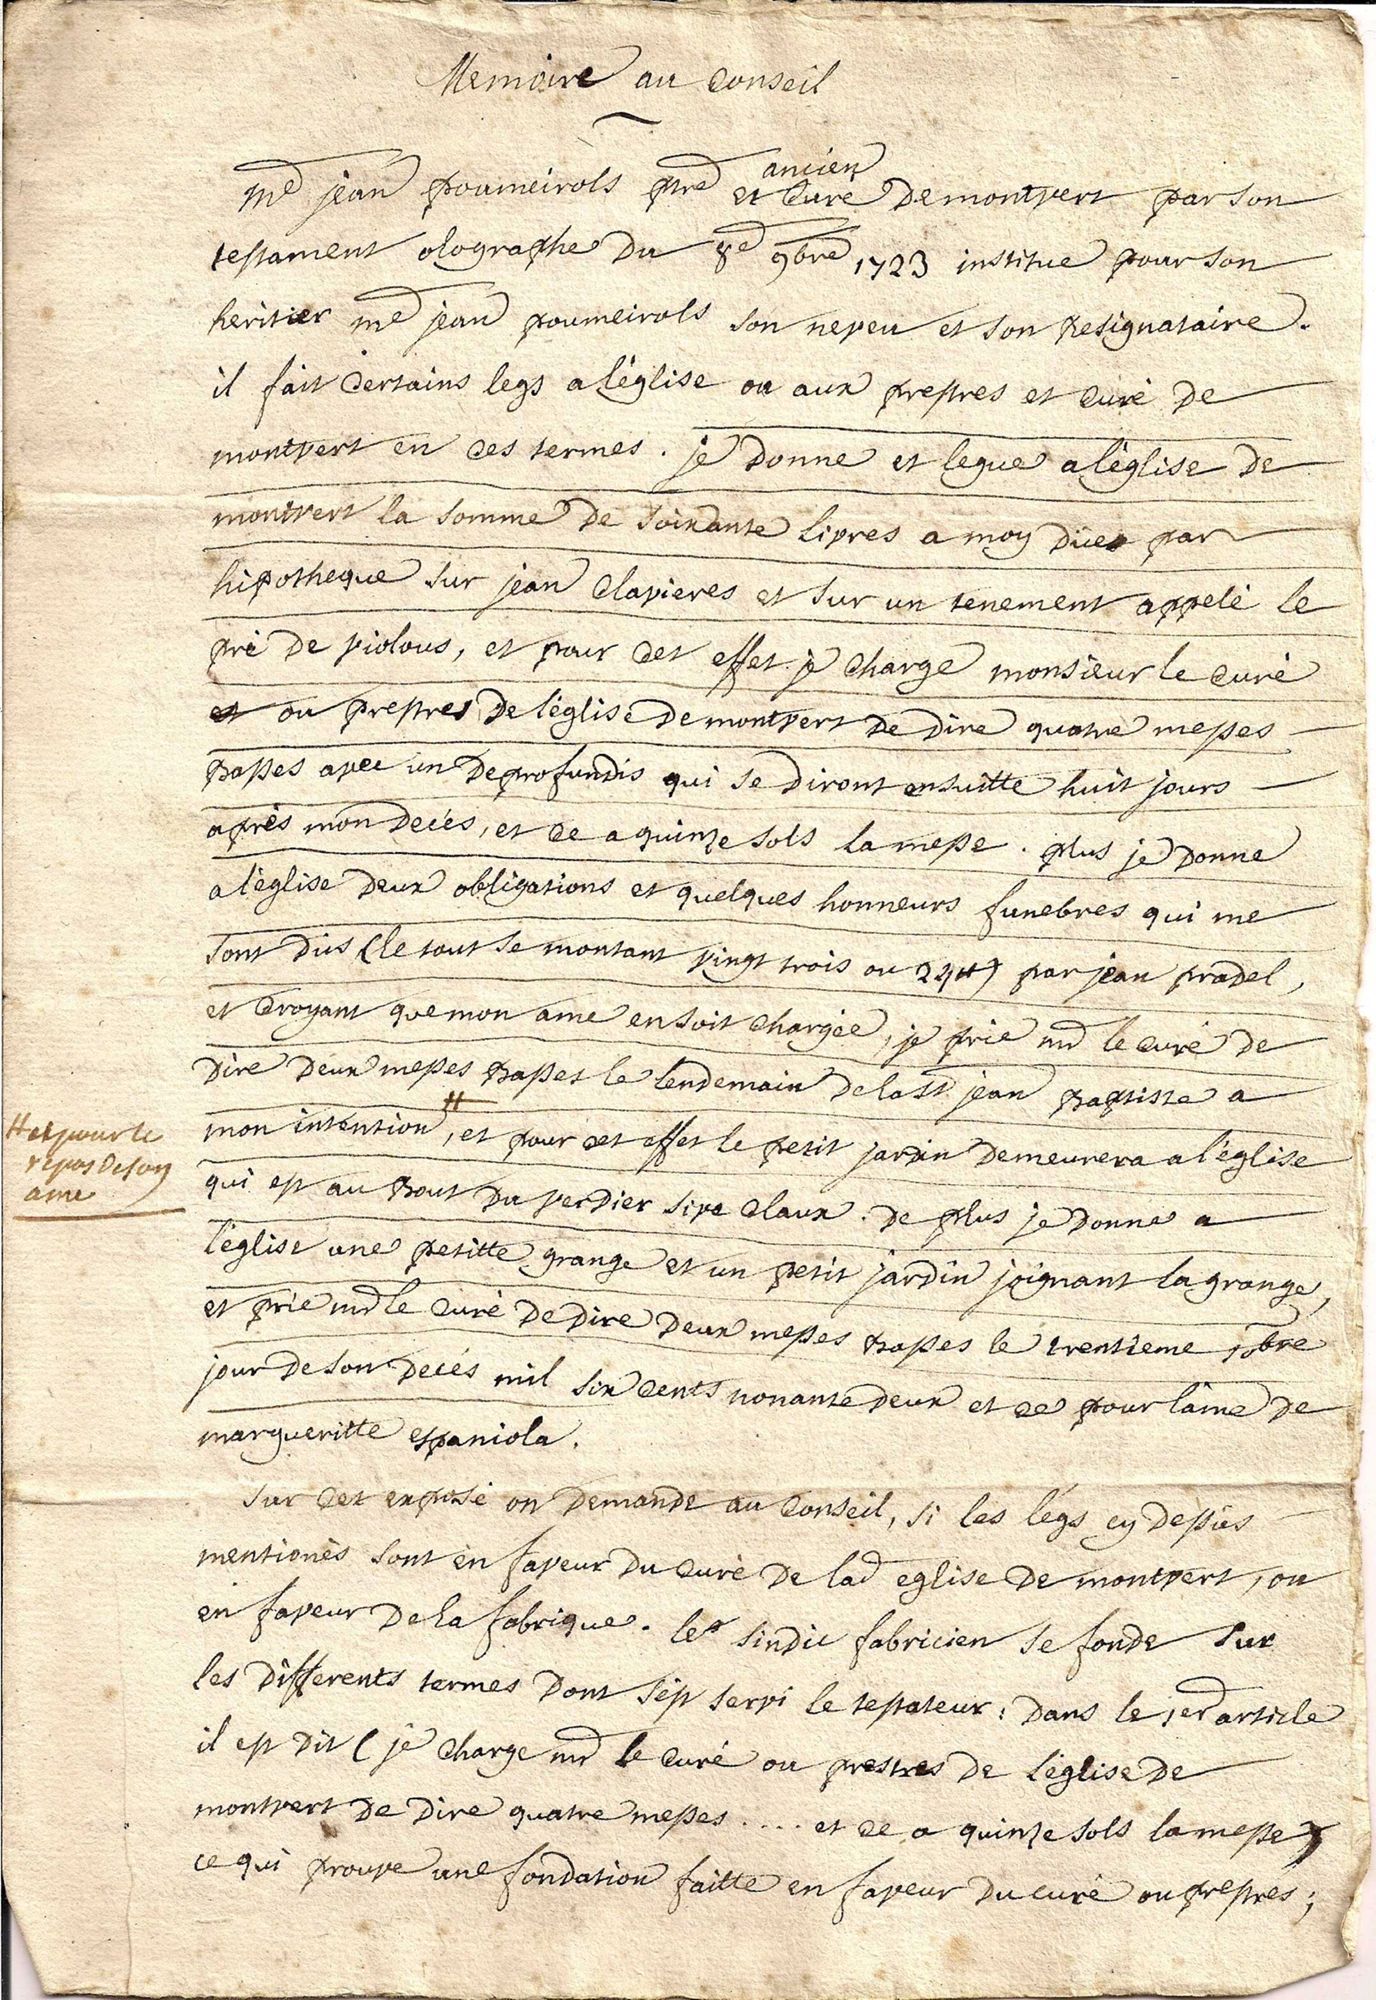 Memoire au Conseil
me jean poumeirols ptre et ancien Curé de montvert par son
testament olographe du 8e 9bre 1723 institue pour son
heritier me jean poumeirols son neveu et son resignataire.
il fait certains legs a l'église ou aux prestres et curé de
montvert en ces termes. je donne et legue a l'église de
montvert la somme de soixante livres a moy dües par
hipotheque sur jean Clavieres et sur un tenement appelé le
pré de violous, et pour cet effet je charge monsieur le curé
et ou prestres de l'église de montvert de dire quatre messes
basses avec un deprofundis qui se diront ensuitte huit jours
après mon decés, et ce a quinze sols la messe. plus je donne
a l'église deux obligations et quelques honneurs funebres qui me
sont dus (le tout se montant vingt trois ou 24#) par jean pradel,
et croyant que mon ame en soit chargée, je prie mr le curé de
dire deux messes basses le lendemain de la st jean baptiste a
mon intention # , et pour cet effet le petit jardin demeurera a l'église
# et pour le
repos de son
ame
qui est au bout du verdier sive claux. de plus je donne a
l'église une petitte grange et un petit jardin joignant la grange,
et prie mr le curé de dire deux messes basses le trentieme 10bre
jour de son decés mil six cents nonante deux et ce pour l'ame de
margueritte espaniola.
sur cet exposé on demande au conseil, si les légs cy dessus
mentionés sont en faveur du curé de lad eglise de montvert, ou
en faveur de la fabrique. le sindic fabricien se fonde sur
les differents termes dont s'est servi le testateur: dans le 1er article
il est dit (je charge mr le curé ou prestres de l'église de
montvert de dire quatre messes .... et ce a quinze sols la messe)
ce qui prouve une fondation faitte en faveur du curé ou prestres;